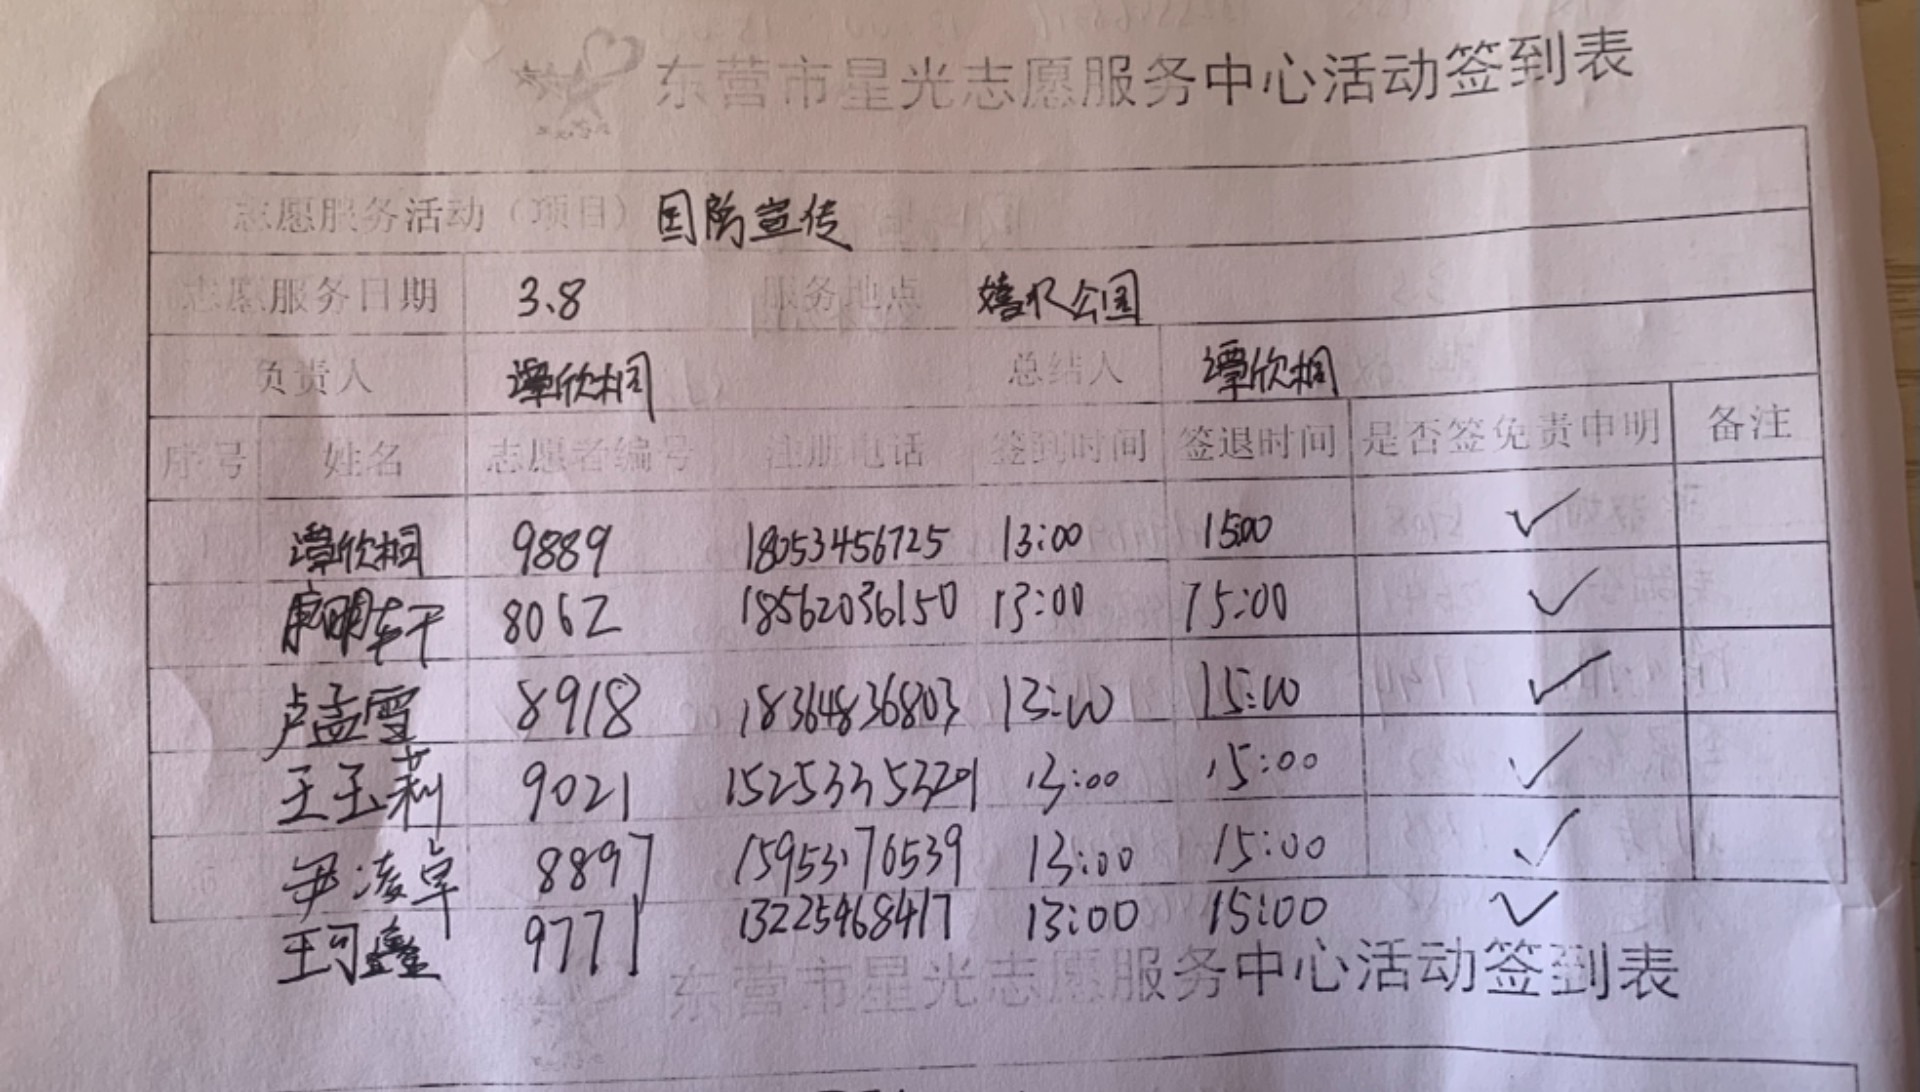 东营市星光志愿服务中心活动签到表
志愿服务活动（项目） 国防宣传
志愿服务日期 3.8 服务地点 嬉水公园
负责人 谭欣桐 总结人 谭欣桐
序号 姓名 志愿者编号 注册电话 签到时间 签退时间 是否签免责申明 备注
谭欣桐 9889 18053456725 13:00 15:00 ✓
8062 18562036150 13:00 15:00 ✓
卢孟雪 8918 18364836803 13:00 15:00 ✓
王玉莉 9021 13:00 15:00 ✓
尹凌卓 8897 15953176539 13:00 15:00 ✓
王可鑫 9771 13225468417 13:00 15:00 ✓
东营市星光志愿服务中心活动签到表